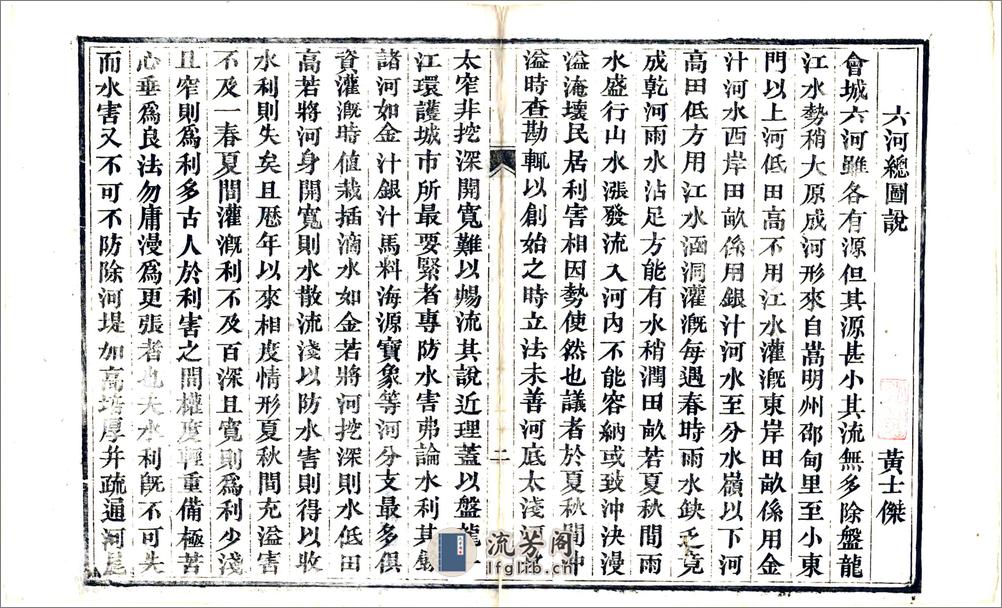 六河總圖說
黃士傑
會城六河雖各有源但其源甚小其流無多除盤龍
江水勢稍大原成河形來自嵩明州邵甸里至小東
門以上河低田高不用江水灌漑東岸田畝係用金
汁河水西岸田畝係用銀汁河水至分水嶺以下河
高田低方用江水涵洞灌漑每遇春時雨水缺乏竟
成乾河雨水沾足方能有水稍潤田畝若夏秋間雨
水盛行山水漲發流入河內不能容納或致沖決漫
溢淹壞民居利害相因勢使然也議者於夏秋間沖
溢時查勘輒以創始之時立法未善河底太淺河
二
太窄非挖深開寬難以暢流其說近理蓋以盤龍
江環護城市所最要緊者專防水害弗論水利其
諸河如金汁銀汁馬料海源寶象等河分支最多俱
資灌漑時值栽插滴水如金若將河挖深則水低田
高若將河身開寬則水散流淺以防水害則得以收
水利則失矣且歷年以來相度情形夏秋間充溢害
不及一春夏間灌漑利不及百深且寬則爲利少淺
且窄則爲利多古人於利害之間權度輕重備極苦
心垂爲良法勿庸漫爲更張者也夫水利旣不可失
而水害又不可不防除河堤加高培厚幷疏通河尾
流芳阁
lfglib.cn